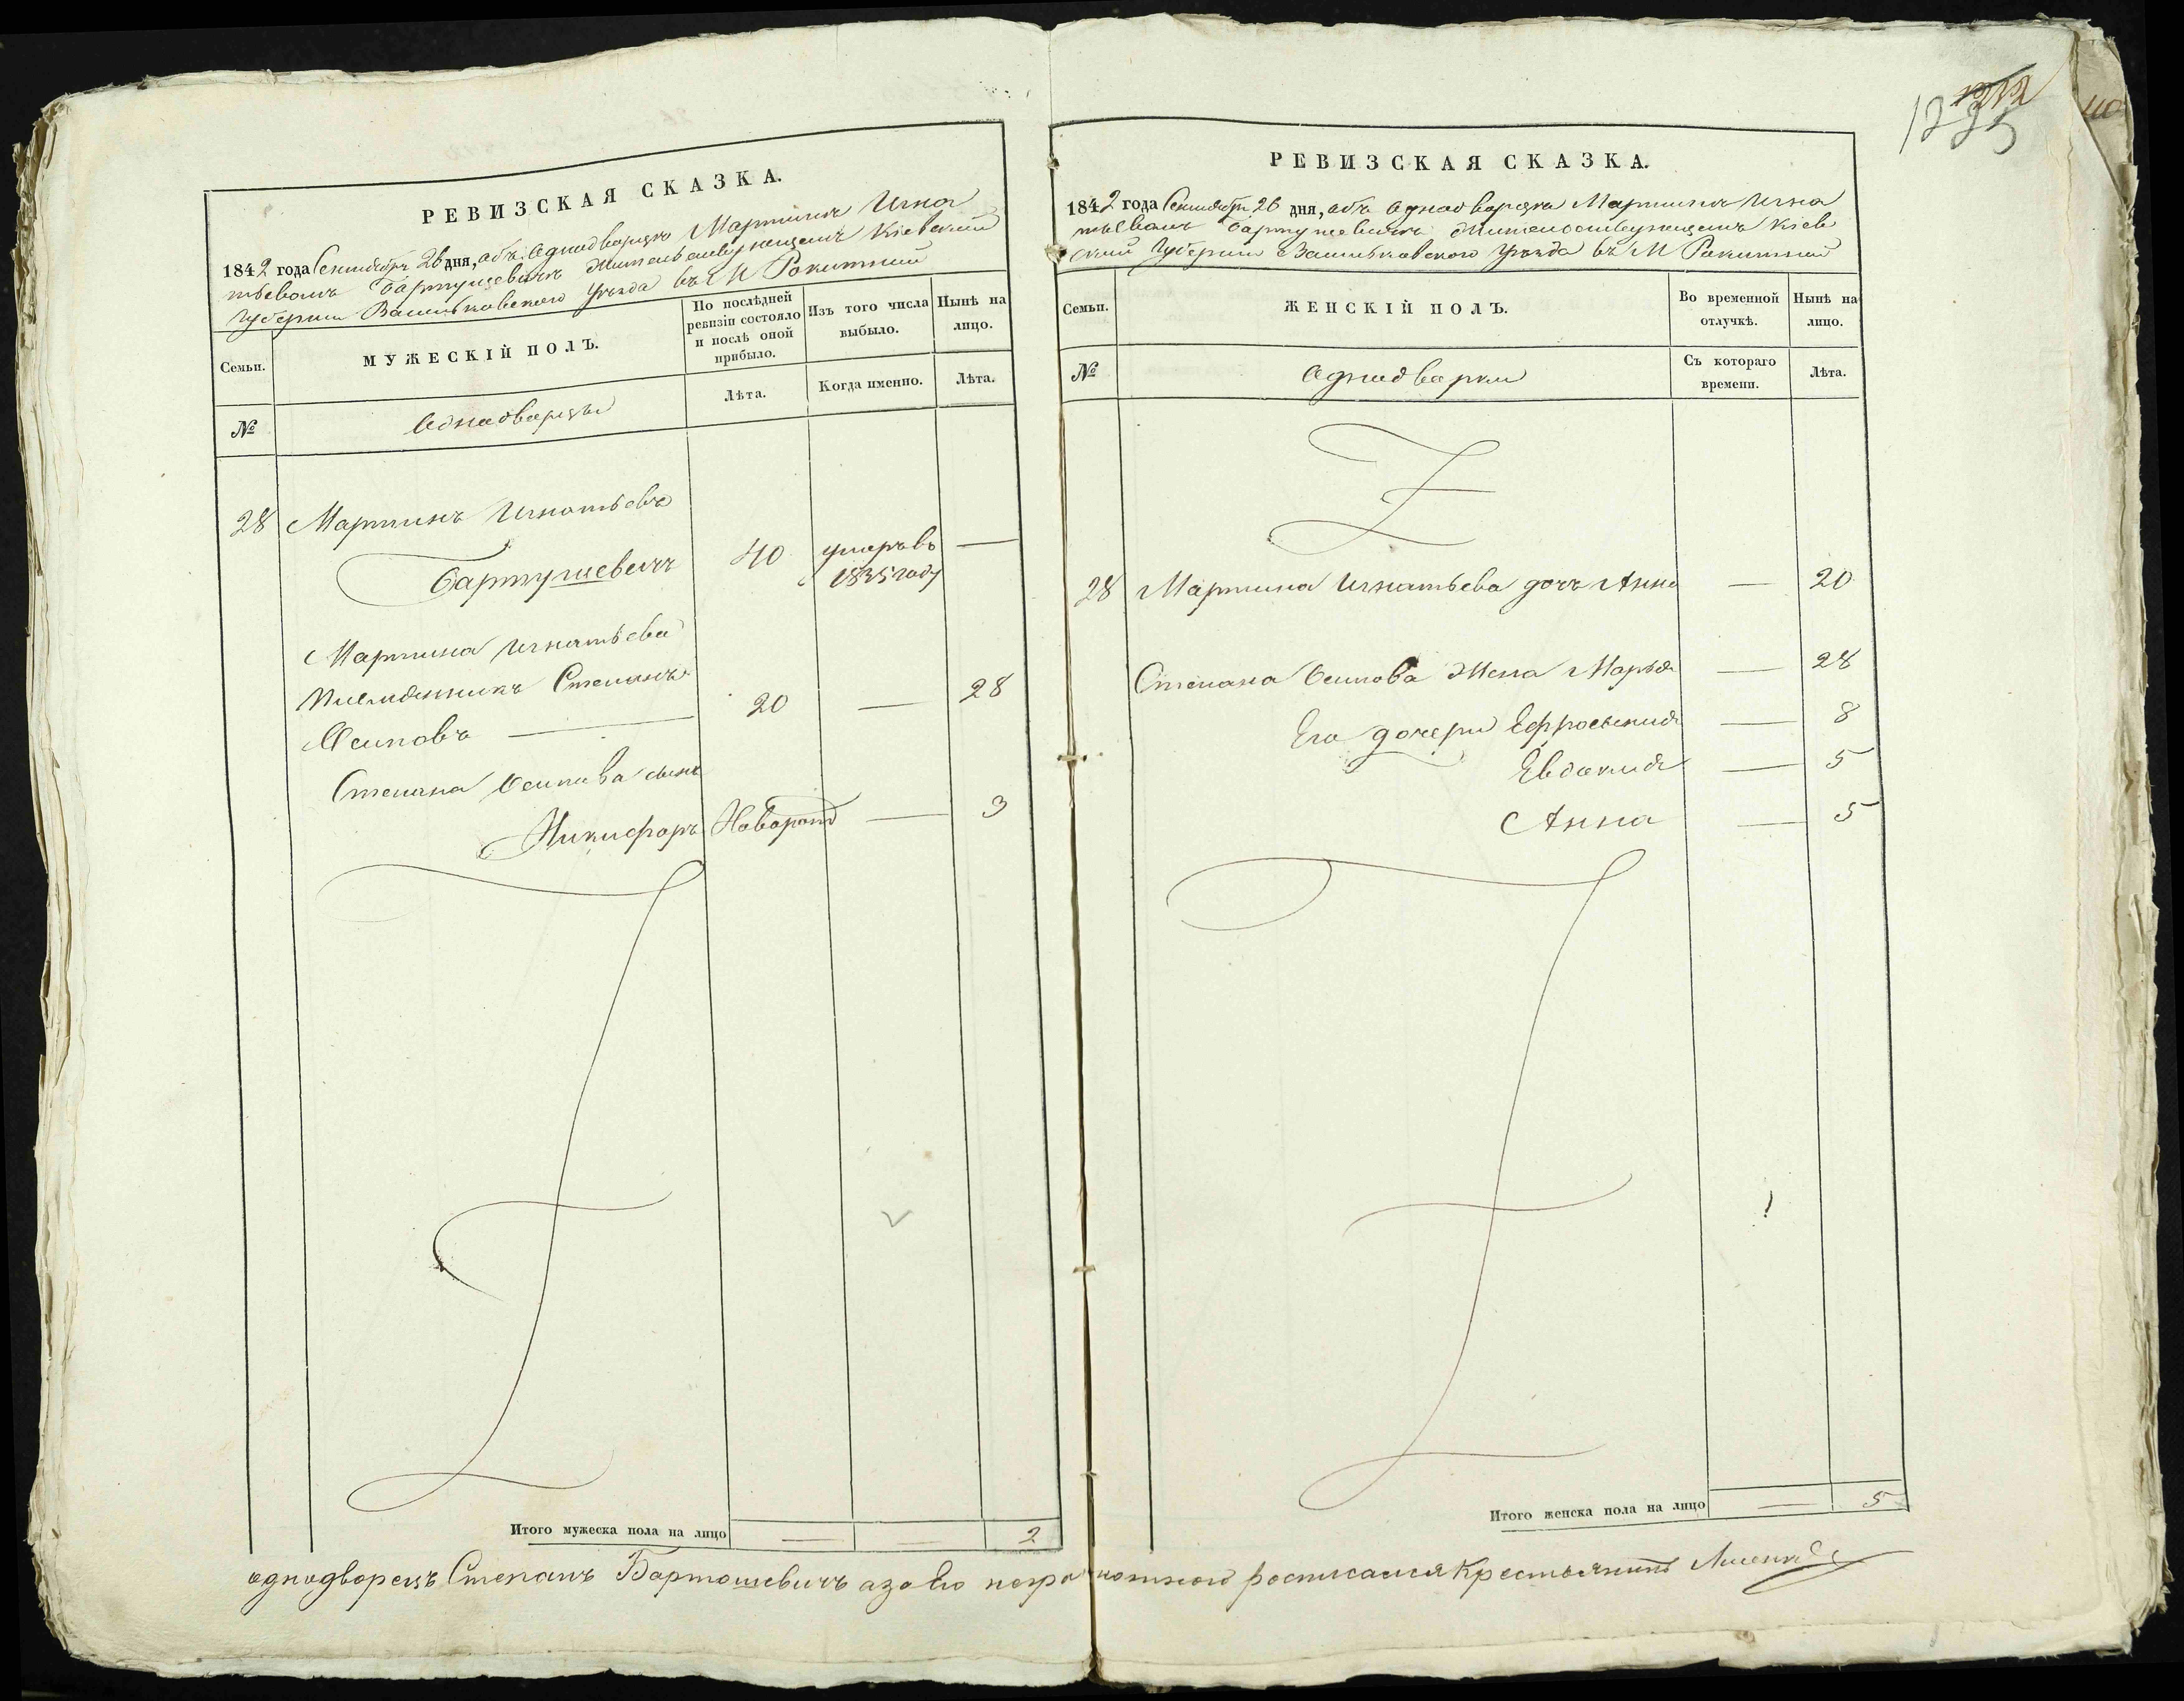 РЕВИЗСКАЯ СКАЗКА.
1842 года Сентября 26 дня, объ однодворцѣ Мартинѣ Игна
тьевомъ Бартушевичѣ жительствующемъ Кіевской
Губерніи Васильковскаго уѣзда въ М Рокитной
Семьи.
МУЖЕСКІЙ ПОЛЪ.
По послѣдней
ревизіи состояло
и послѣ оной
прибыло.
Изъ того числа
выбыло.
Нынѣ на
лицо.
№
Однодворцы
Лѣта.
Когда именно.
Лѣта.
28 Мартинъ Игнатьевъ
Бартушевичъ 40 умеръ въ —
1835 году
Мартина Игнатьева
племянникъ Степанъ
Осиповъ — 20 — 28
Степана Осипова сынъ
Никифоръ Новорожд — 3
Итого мужеска пола на лицо — — 2
РЕВИЗСКАЯ СКАЗКА.
1842 года Сентября 26 дня, объ однодворцѣ Мартинѣ Игна
тьевомъ Бартушевичѣ жительствующемъ Кіев
ской Губерніи Васильковскаго уѣзда въ М Рокитной
Семьи.
ЖЕНСКІЙ ПОЛЪ.
Во временной
отлучкѣ.
Нынѣ на
лицо.
№
Однодворки
Съ котораго
времени.
Лѣта.
28 Мартина Игнатьева дочь Анна — 20
Степана Осипова жена Марья — 28
Его дочери Ефросинія — 8
Евдокия — 5
Анна — 5
Итого женска пола на лицо — 5
однодворецъ Степанъ Бартошевичъ а за его неграмотного росписался Крестьянинъ